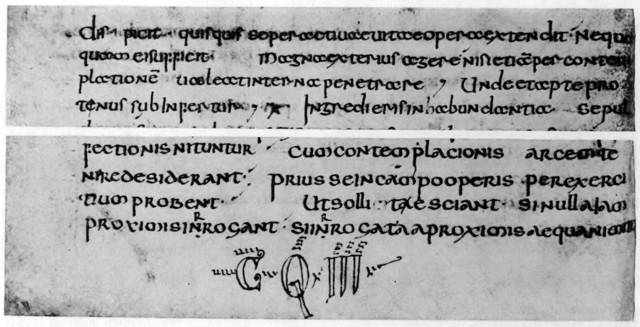 dispicit quisquis se per actiuae uitae opera extendit. Nequa
quam ei sufficit magna exterius agere nisi etiā per contem
plationē ualeat interna penetrare ; Unde et apte pro
tenus subinfertur ; Ingredieris in habundantia sepul
fectionis nituntur cum contemplacionis arcem te
nere desiderant prius se in campo operis per exerci
tium probent Ut solli tae sciant si nulla iam
proximis inrogant si inrogata a proximis aequanim
Q IIII